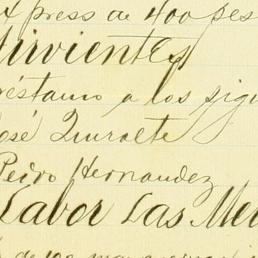 press de 400 pes
Sirvientes
réstamo a los sigu
José Zuraete
Pedro Hernandez
Labor Las Me